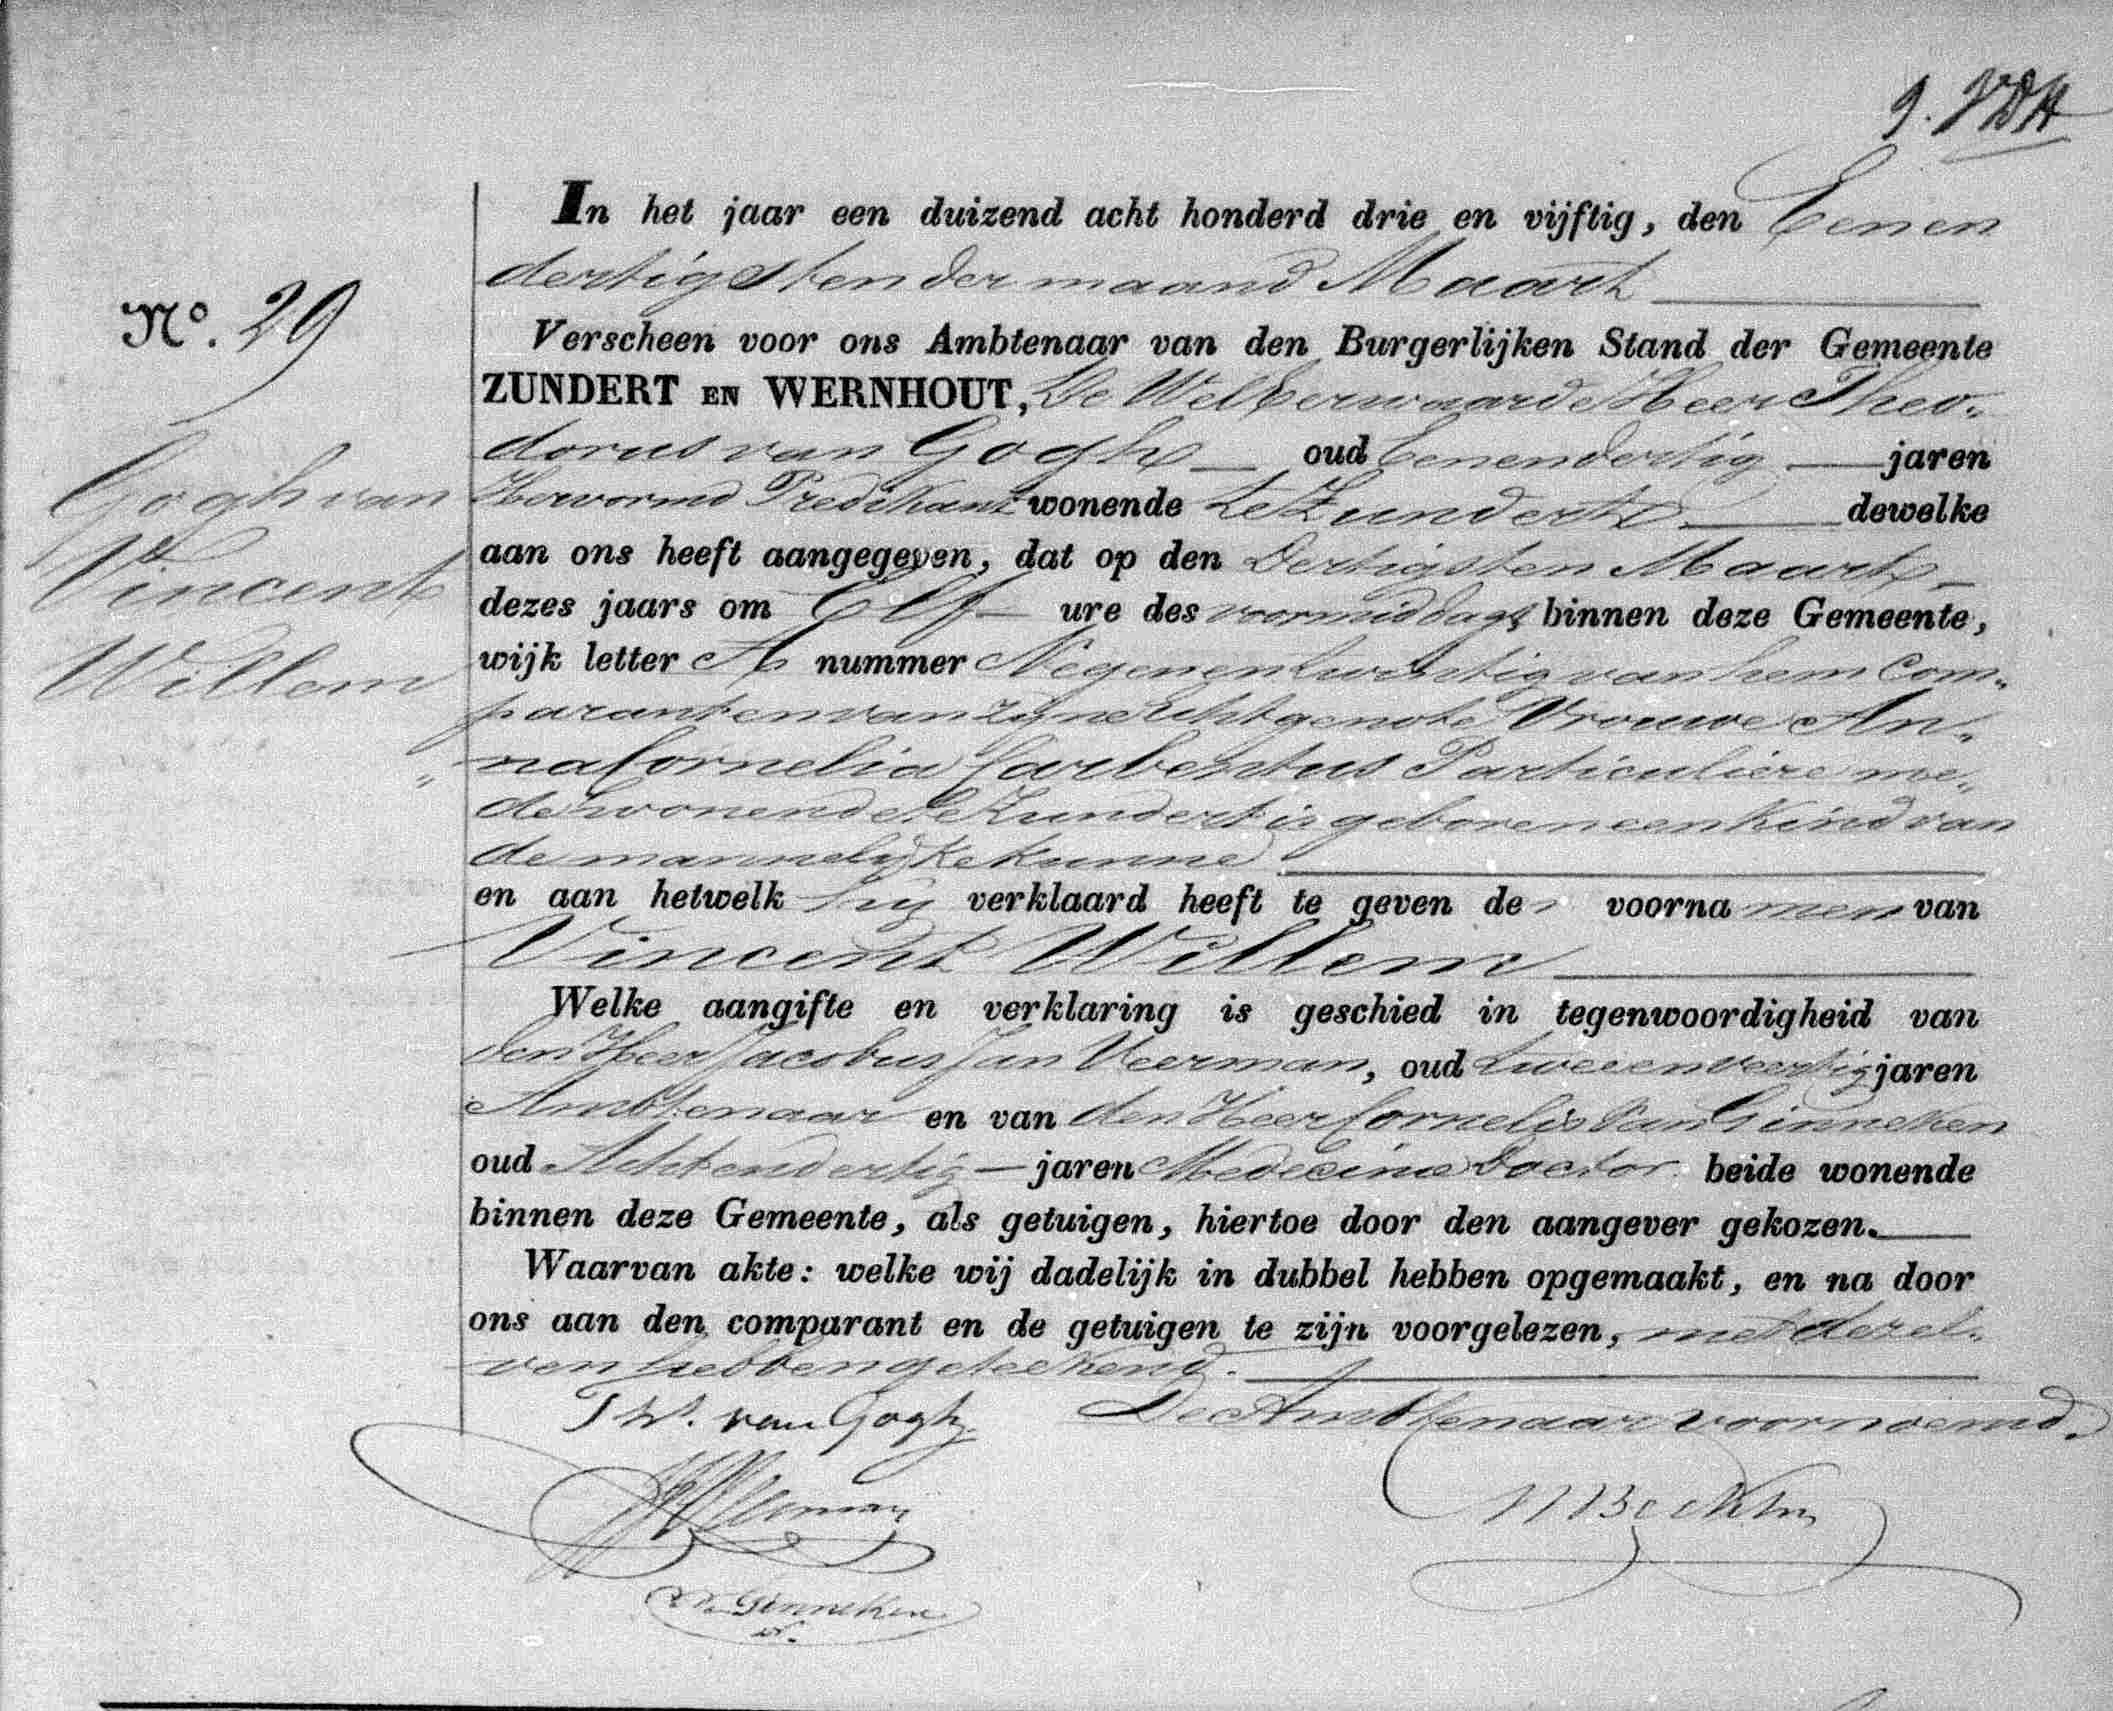 In het jaar een duizend acht honderd drie en vijftig, den Eenen
dertigsten der maand Maart
No. 29
Verscheen voor ons Ambtenaar van den Burgerlijken Stand der Gemeente
ZUNDERT EN WERNHOUT, De Wel Eerwaarde Heer Theo„
dorus van Gogh oud Eenendertig jaren
Gogh van
Hervormd Predikant wonende te Zundert dewelke
aan ons heeft aangegeven, dat op den Dertigsten Maart
Vincent
dezes jaars om Elf ure des voormiddags binnen deze Gemeente,
Willem
wijk letter A nummer Negenentwintig van hem Com„
parant en van zijne Echtgenote Vrouwe An„
„na Cornelia Carbentus Particuliere me„
de wonende te Zundert is geboren een Kind van
de mannelijke Kunne
en aan hetwelk hij verklaard heeft te geven de voornamen van
Vincent Willem
Welke aangifte en verklaring is geschied in tegenwoordigheid van
den Heer Jacobus Jan Veerman, oud tweeenveertig jaren
Ambtenaar en van den Heer Cornelis van Ginneken
oud Achtendertig jaren Medecinae Doctor beide wonende
binnen deze Gemeente, als getuigen, hiertoe door den aangever gekozen.
Waarvan akte: welke wij dadelijk in dubbel hebben opgemaakt, en na door
ons aan den comparant en de getuigen te zijn voorgelezen, met dezel„
ven hebben geteekend.
T. van Gogh. De Ambtenaar voornoemd.
Veerman
v. Ginneken